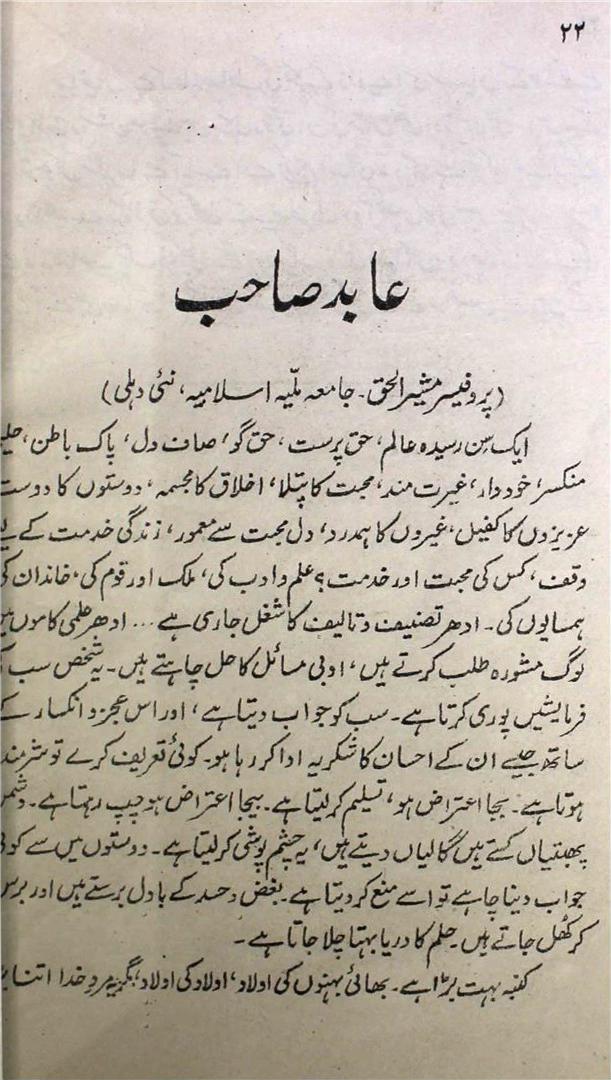 ۲۲
عابد صاحب
(پروفیسر مشیر الحق۔ جامعہ ملّیہ اسلامیہ، نئی دہلی)
ایک سِن رسیدہ عالم، حق پرست، حق گو، صاف دل، پاک باطن،
منکسر، خوددار، غیرت مند، محبت کا پتلا، اخلاق کا مجسمہ، دوستوں کا دوست
عزیزوں کا کفیل، غیروں کا ہمدرد، دل محبت سے معمور، زندگی خدمت کے
وقف، کس کی محبت اور خدمت؟ علم و ادب کی، ملک اور قوم کی، خاندان کی
ہمسایوں کی۔ ادھر تصنیف و تالیف کا شغل جاری ہے... ادھر علمی کاموں میں
لوگ مشورہ طلب کرتے ہیں، ادبی مسائل کا حل چاہتے ہیں۔ یہ شخص سب
فرمایشیں پوری کرتا ہے۔ سب کو جواب دیتا ہے، اور اس عجز و انکسار کے
ساتھ جیسے ان کے احسان کا شکریہ ادا کر رہا ہو۔ کوئی تعریف کرے تو
ہوتا ہے۔ بجا اعتراض ہو، تسلیم کر لیتا ہے۔ بیجا اعتراض ہو چپ رہتا ہے۔
پھبتیاں کستے ہیں گالیاں دیتے ہیں، یہ چشم پوشی کر لیتا ہے۔ دوستوں میں سے
جواب دینا چاہے تو اسے منع کر دیتا ہے۔ بغض و حسد کے بادل برستے ہیں اور برس
کر کھل جاتے ہیں۔ حلم کا دریا بہتا چلا جاتا ہے۔
کنبہ بہت بڑا ہے۔ بھائی بہنوں کی اولاد، اولاد کی اولاد، مگر یہ مرد خدا اتنا